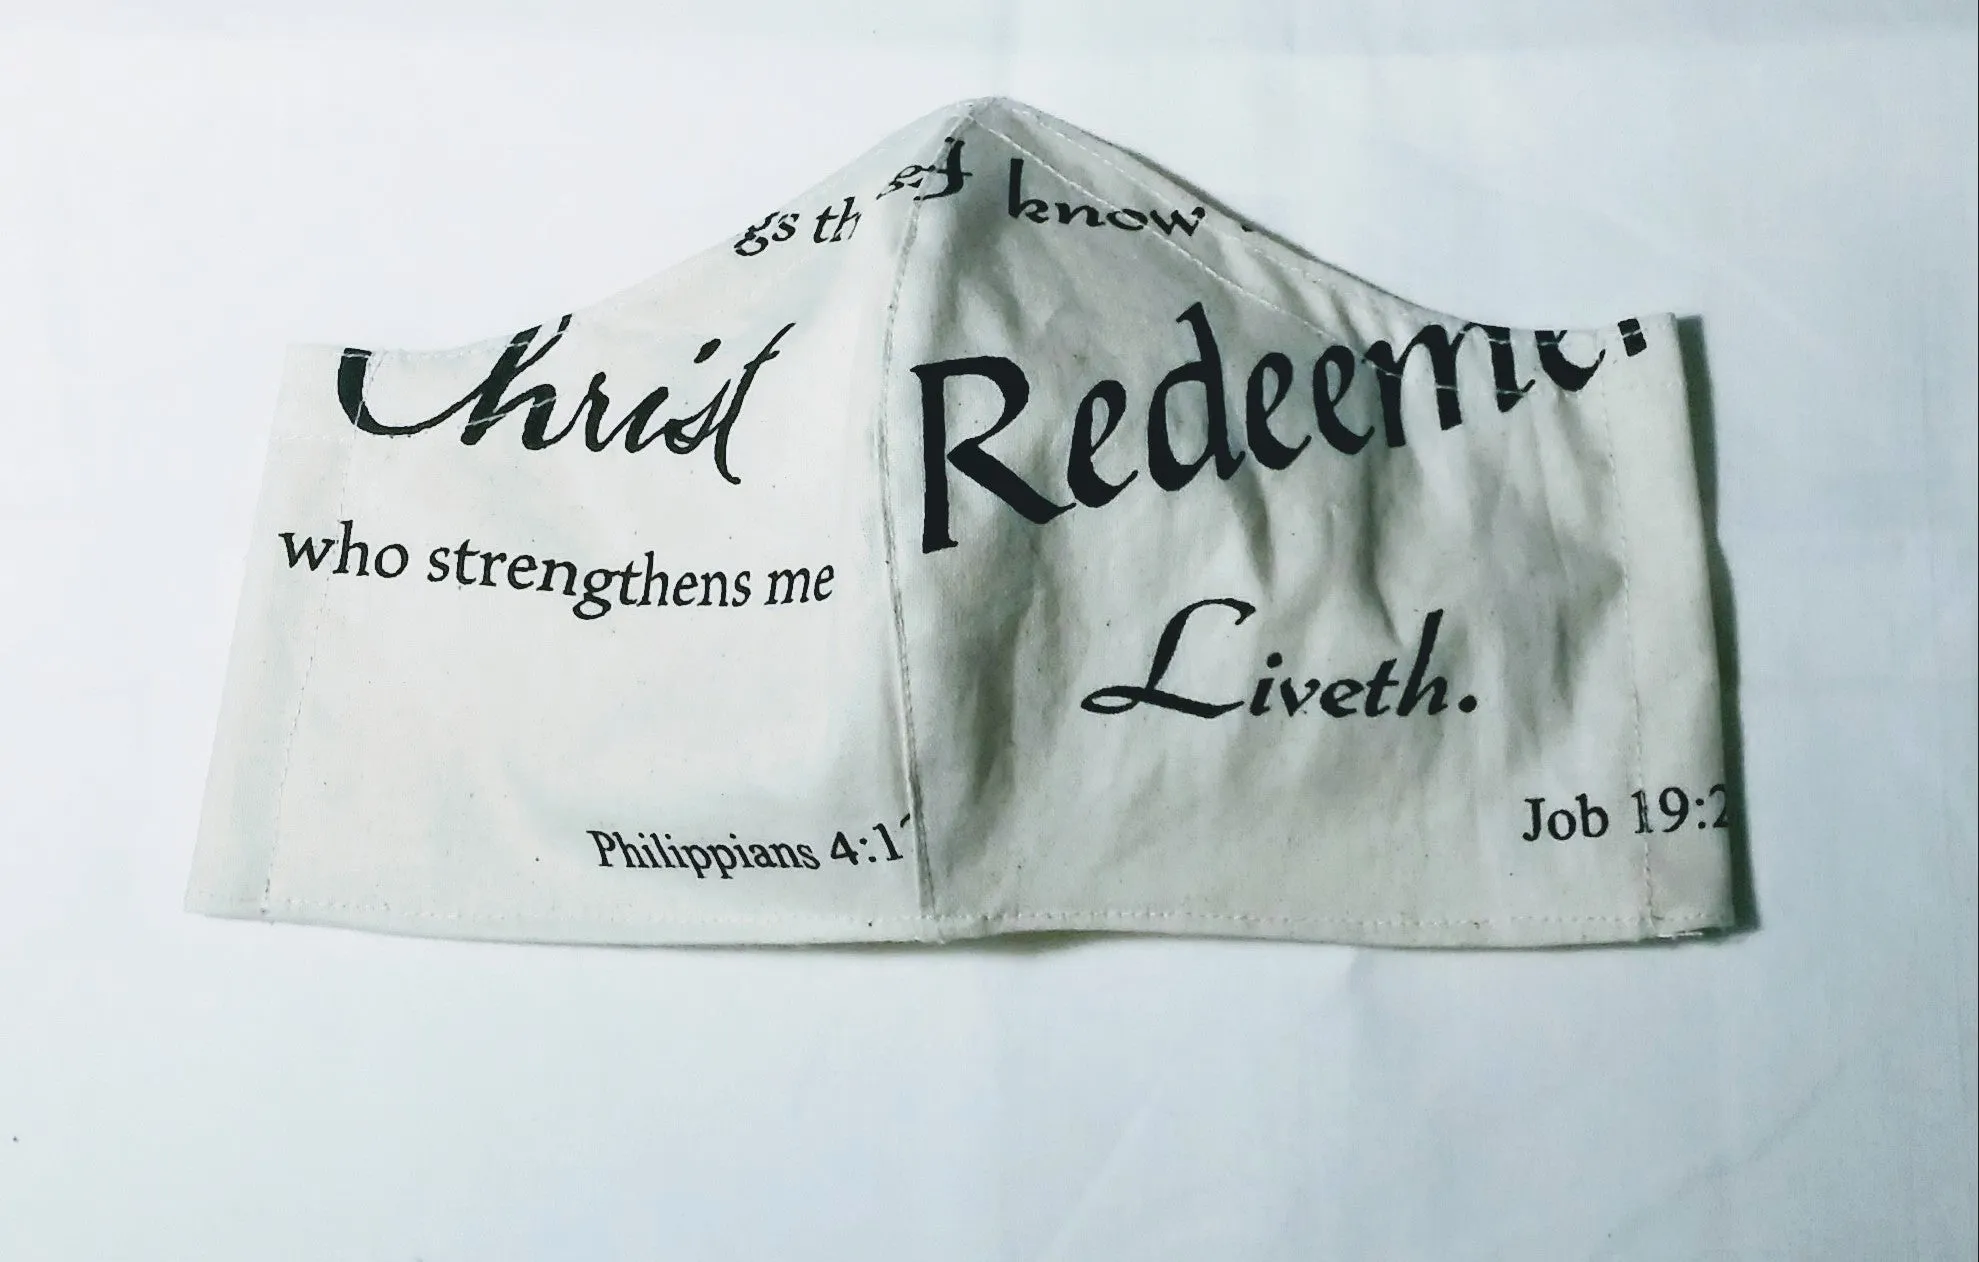 gs th
Christ
who strengthens me
Philippians 4:1
I know
Redeemer
Liveth.
Job 19:2